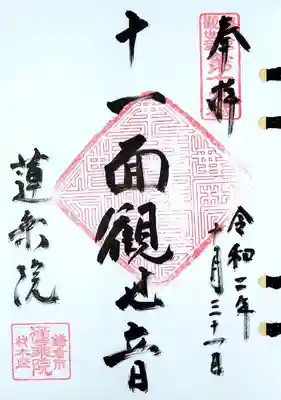 奉拝
令和二年
十月三十一日
十一面観世音
蓮乗院
鎌倉市
蓮乗院
材木座